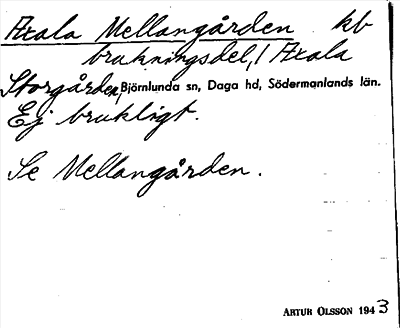 Axala Mellangården kb
brukningsdel, i Axala
Storgården, Björnlunda sn, Daga hd, Södermanlands län.
Ej brukligt.
Se Mellangården.
ARTUR OLSSON 1943